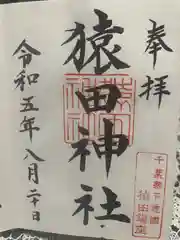 奉拝
千葉県下總國
猿田鎮座
猿田神社
令和五年八月二十日